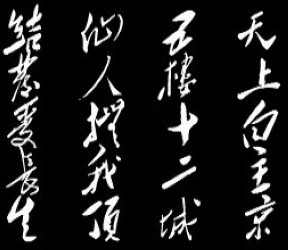 天上白玉京
五樓十二城
仙人撫我頂
結髮受長生